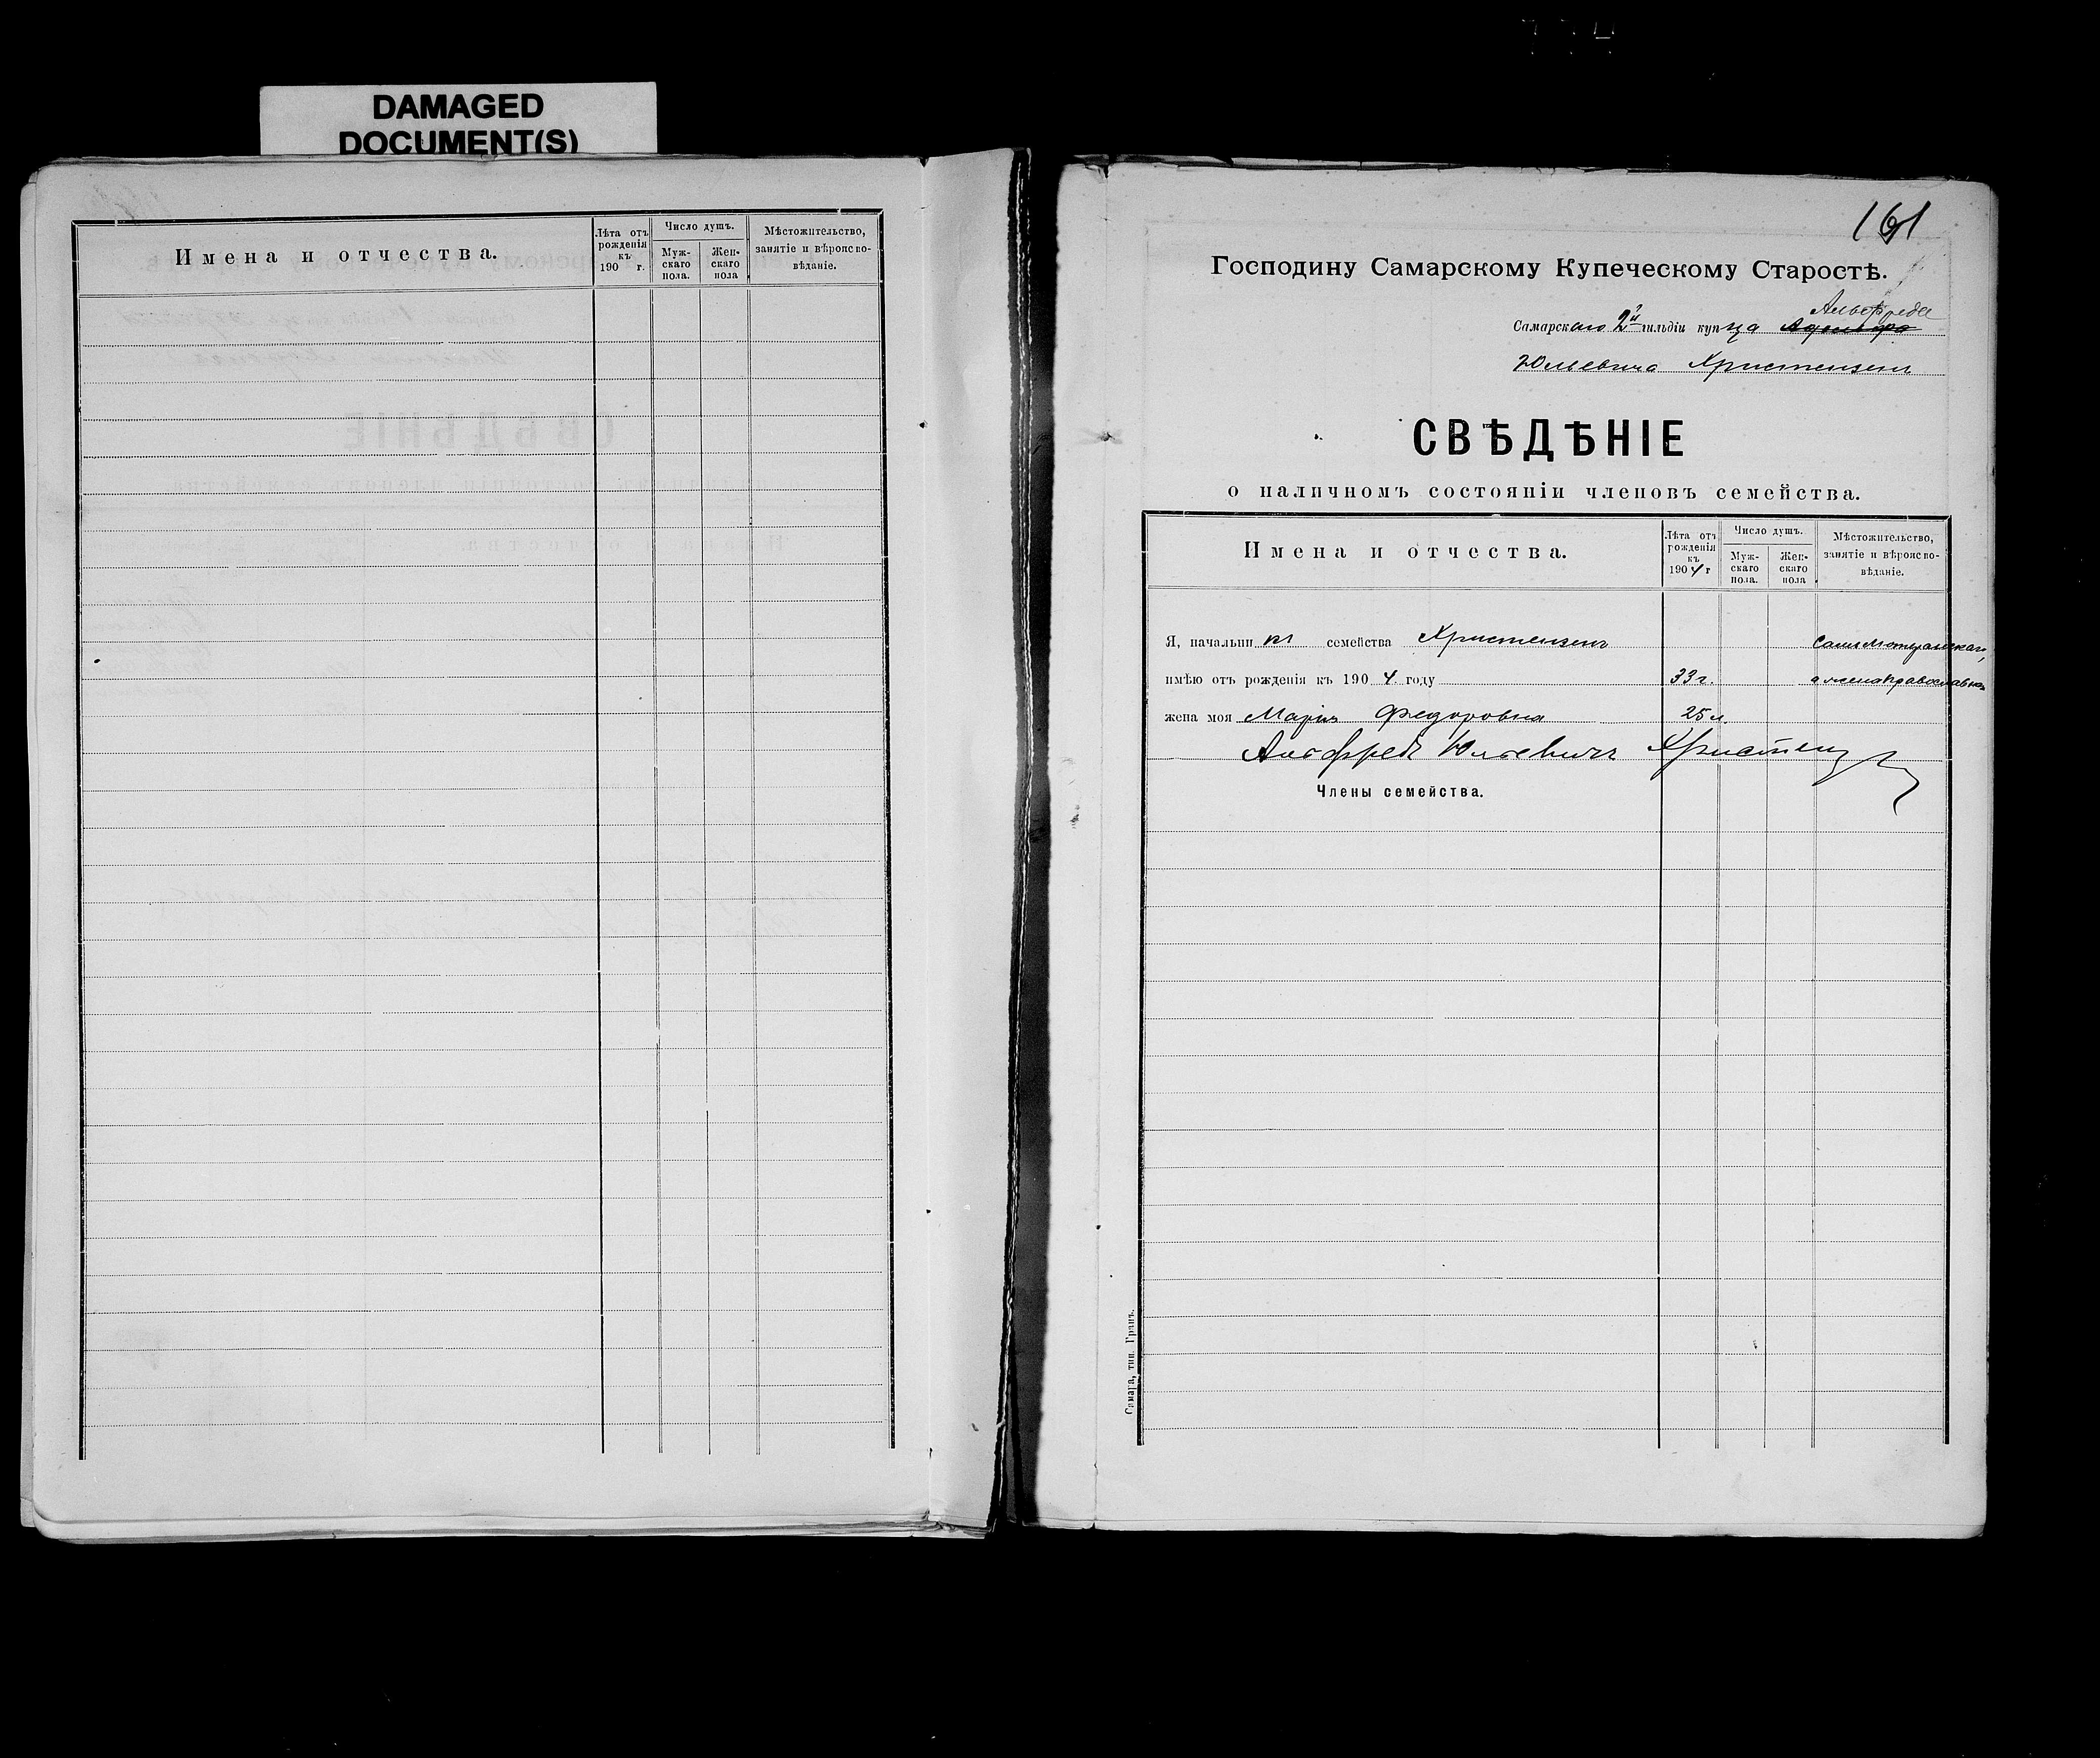 DAMAGED
DOCUMENT(S)
Имена и отчества.
Лѣта отъ рожденія къ 190 г.
Число душъ.
Мужскаго пола.
Женскаго пола
Мѣстожительство, занятіе и вѣроисповѣданіе.
161
Господину Самарскому Купеческому Старостѣ.
Альфреда
Самарскаго 2й гильдіи купца
Юльевича Христензенъ
СВѢДѢНІЕ
о наличномъ состояніи членовъ семейства.
Имена и отчества.
Лѣта отъ рожденія къ 1904 г
Число душъ.
Мужскаго пола.
Женскаго пола
Мѣстожительство, занятіе и вѣроисповѣданіе.
Я, начальникъ семейства Христензенъ Самъ
имѣю отъ рожденія къ 1904 году 33 г. а жена православная
жена моя Марія Федоровна 25 л
Альфредъ Юльевичъ Христензенъ
Члены семейства.
Самара, тип. Гранъ.